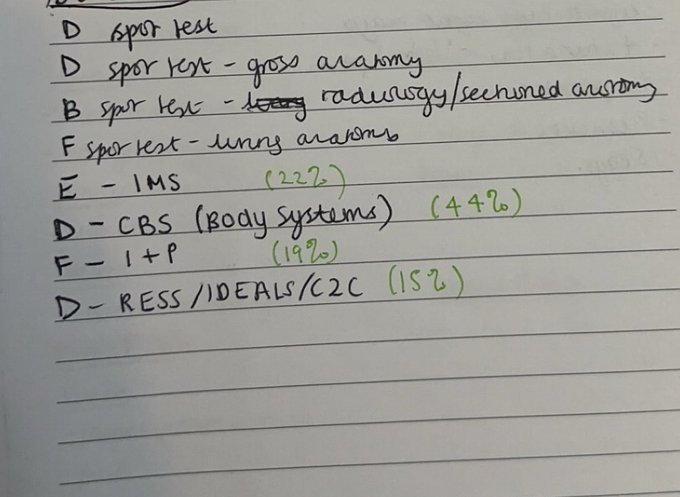 D spot test
D spot test - gross anatomy
B spot test - radiology/sectioned anatomy
F spot test - living anatomy
E - IMS (22%)
D - CBS (Body Systems) (44%)
F - I + P (19%)
D - RESS/IDEALS/C2C (15%)